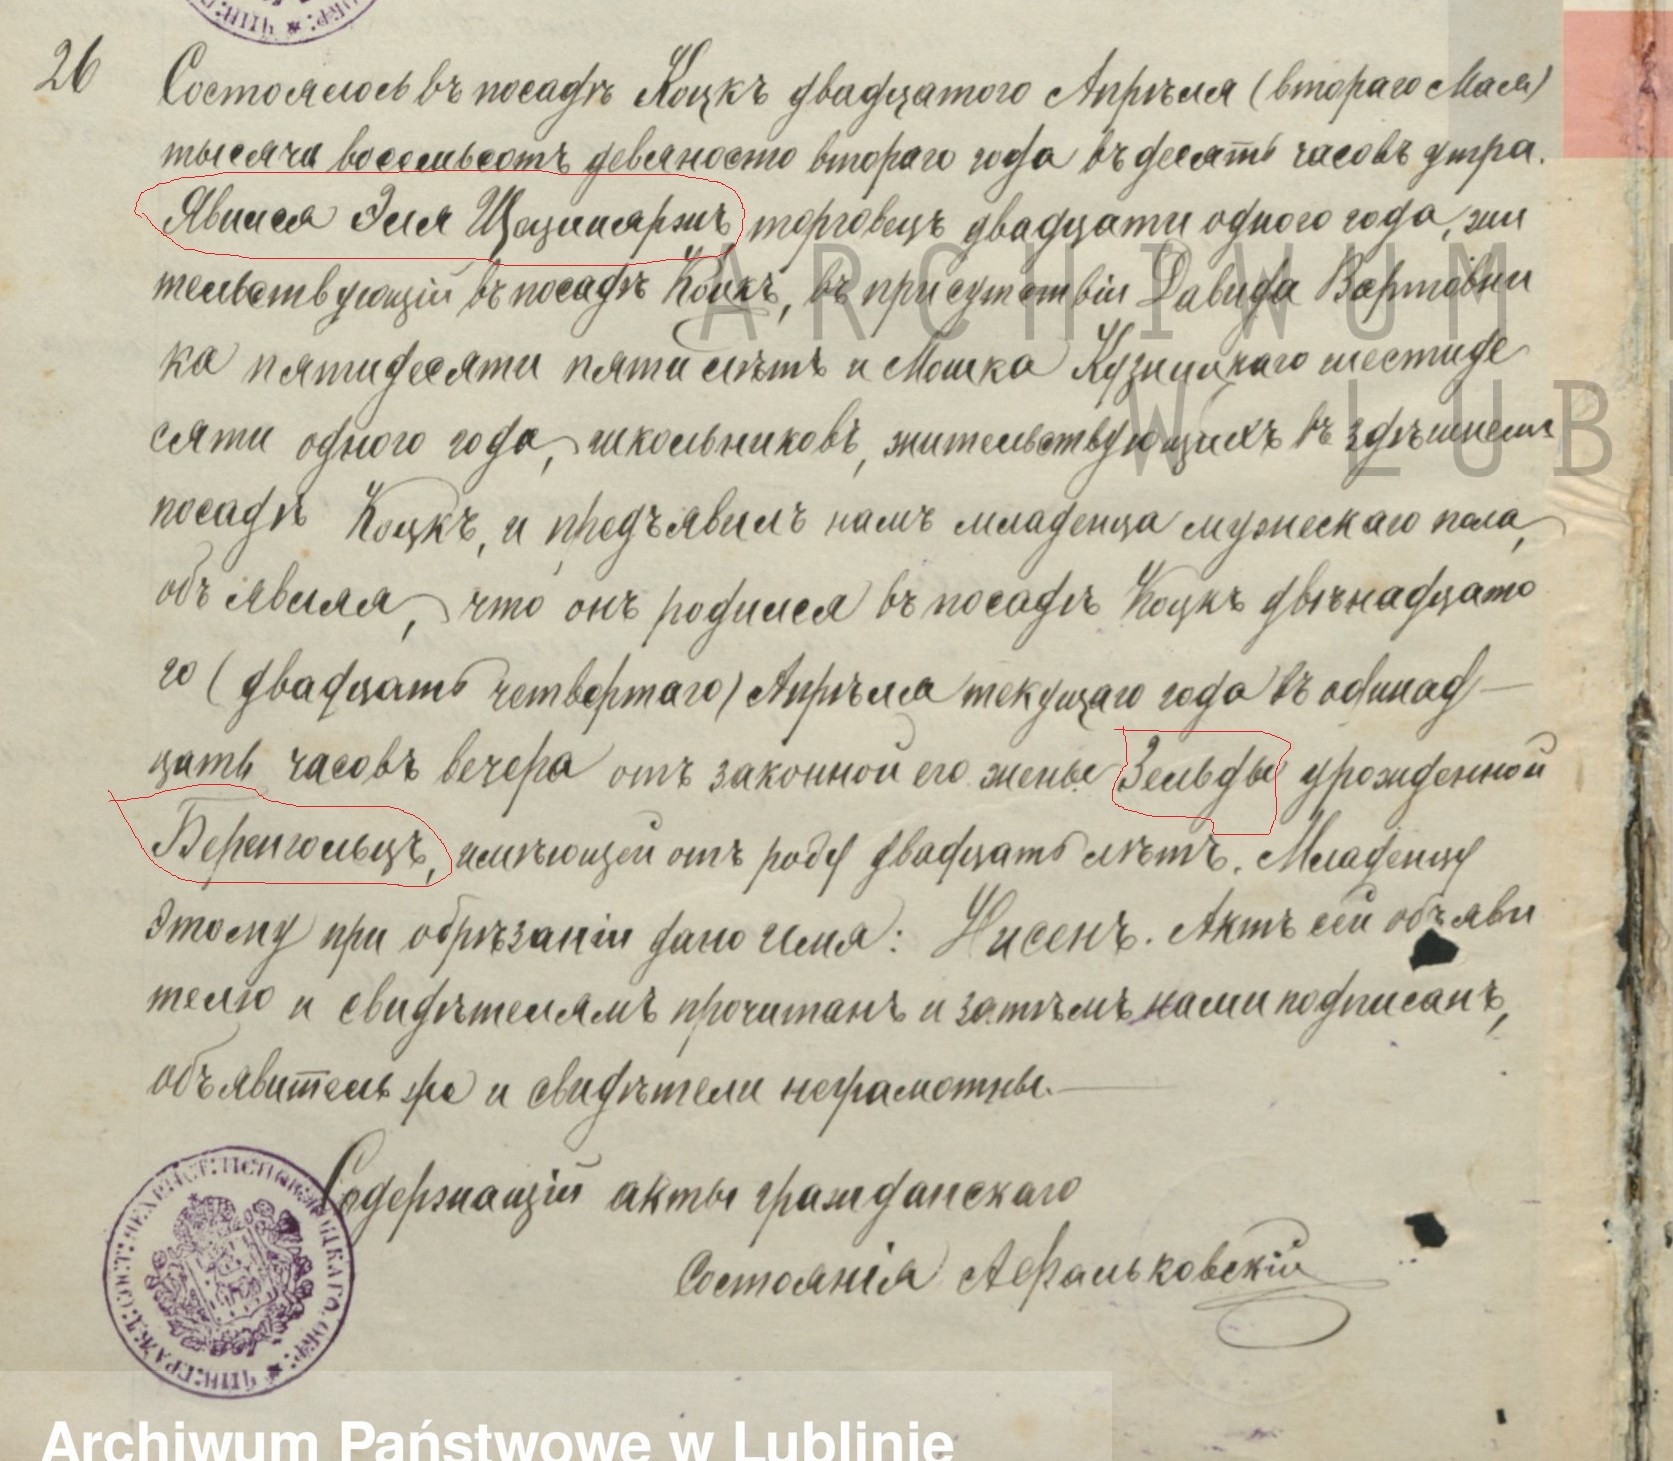 26
Состоялось въ посадѣ Коцкъ двадцатого Апрѣля (второго Мая)
тысяча восемьсотъ девяносто второго года въ десять часовъ утра.
Явился Эля торговецъ двадцати одного года, жи
тельствующій въ посадѣ Коцкъ, въ присутствіи Давида Вортовни
ка пятидесяти пяти лѣтъ и Мошка шестиде
сяти одного года, школьниковъ, жительствующихъ въ здѣшнемъ
посадѣ Коцкъ, и предъявилъ намъ младенца мужескаго пола,
объявляя, что онъ родился въ посадѣ Коцкъ двѣнадцато
го (двадцать четвертаго) Апрѣля текущаго года въ одинад
цать часовъ вечера отъ законной его жены Зельды урожденной
Беренгольцъ, имѣющей отъ роду двадцать лѣтъ. Младенцу
этому при обрѣзаніи дано имя: Нисенъ. Актъ сей объяви
телю и свидѣтелямъ прочитанъ и затѣмъ нами подписанъ,
объявитель же и свидѣтели неграмотны.
Содержащій акты гражданскаго
Состоянія АФальковскій
ARCHIWUM
W LUB
Archiwum Państwowe w Lublinie